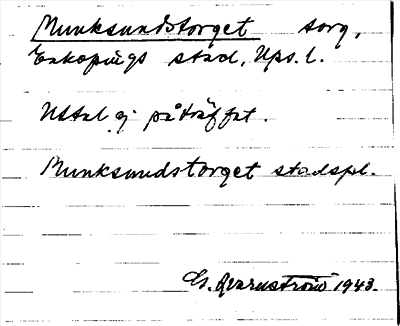 Munksundstorget torg,
Enköpings stad, Ups. l.
Uttal ej påträffat.
Munksundstorget stadspl.
1943.